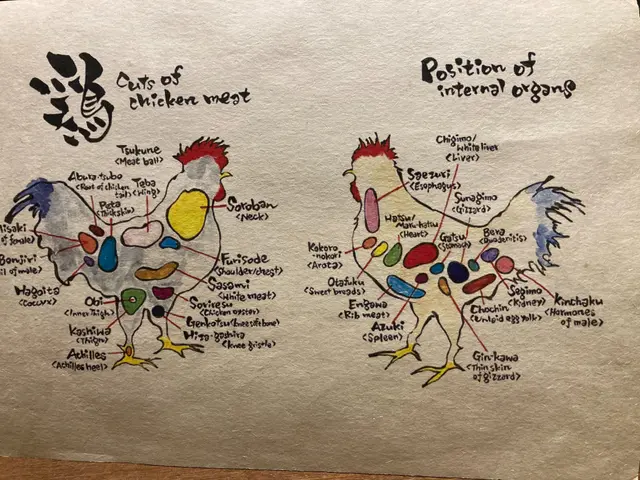 鶏
Cuts of
chicken meat
Tsukune
<Meat ball>
Aburatsubo
<Root of chicken
tail>
Teba
<Wing>
Peta
<Thickskin>
Soroban
<Neck>
Misaki
of female>
Bonjiri
il of male>
Furisode
<Shoulder/chest>
Sasami
<White meat>
Hagoita
<Coccyx>
Obi
<Inner thigh>
Soriresu
<Chicken oyster>
Genkotsu
Hiza-gashira
<Knee gristle>
Kashiwa
<Thigh>
Achilles
<Achilles heel>
Position of
internal organs
Chigimo/
White liver
<Liver>
Saezuri
<Esophogus>
Sunagimo
<Gizzard>
Hatsu/
Maru-hatsu
<Heart>
Gatsu
<Stomach>
Bera
Kokoro
-nokori
<Aorta>
Otafuku
<Sweet breads>
Engawa
<Rib meat>
Azuki
<Spleen>
Segimo
<Kidney>
Kinchaku
<Hormones
of male>
Chochin
<Unlaid egg yolk>
Gin-kawa
<Thin skin
of gizzard>